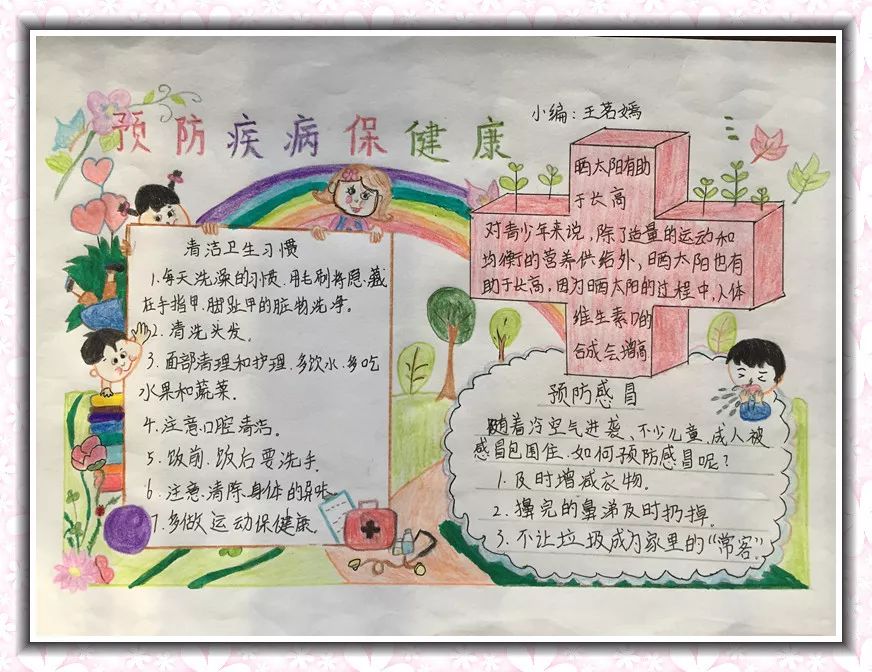 预防疾病保健康
小编：王茗嫣
清洁卫生习惯
1.每天洗澡的习惯.用毛刷将隐藏
在手指甲.脚趾甲的脏物洗净。
2.清洗头发.
3.面部清理和护理.多饮水.多吃
水果和蔬菜.
4.注意口腔清洁。
5.饭前.饭后要洗手.
6.注意.清除.身体的异味
7.多做运动保健康.
晒太阳有助
于长高
对青少年来说，除了适量的运动和
均衡的营养供给外，晒太阳也有
助于长高，因为晒太阳的过程中，人体
维生素D的
合成会增高
预防感冒
随着冷空气进袭、不少儿童、成人被
感冒包围住.如何预防感冒呢？
1.及时增减衣物.
2.擤完的鼻涕及时扔掉.
3.不让垃圾成为家里的“常客”.